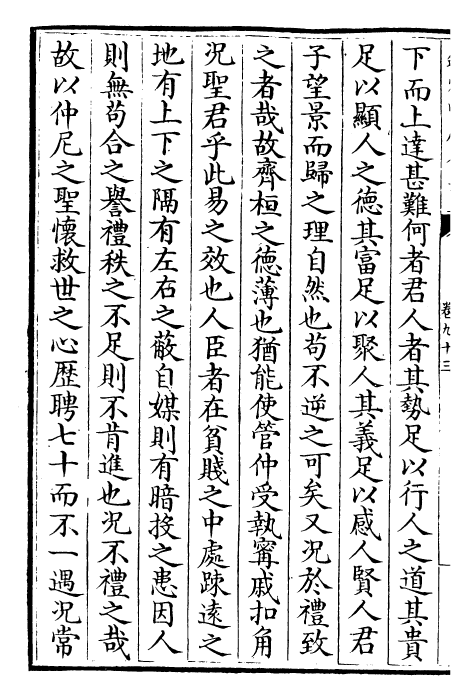 下而上達甚難何者君人者其勢足以行人之道其貴
足以顯人之德其富足以聚人其義足以感人賢人君
子望景而歸之理自然也苟不逆之可矣又況於禮致
之者哉故齊桓之德薄也猶能使管仲受執寗戚扣角
況聖君乎此易之效也人臣者在貧賤之中處踈遠之
地有上下之隔有左右之蔽自媒則有暗投之患因人
則無苟合之譽禮秩之不足則不肯進也況不禮之哉
故以仲尼之聖懷救世之心歴聘七十而不一遇況常
卷九十三